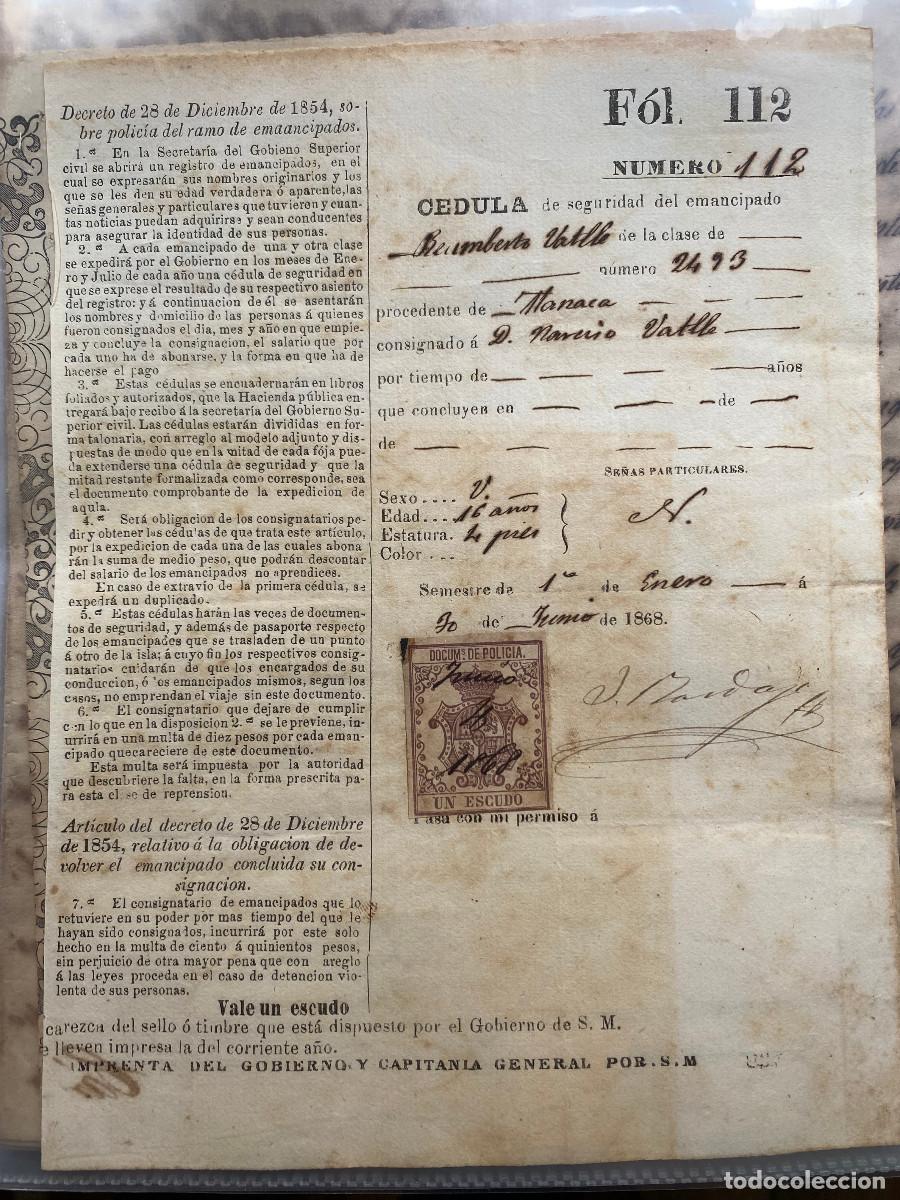 Decreto de 28 de Diciembre de 1854, so-
bre policía del ramo de emaancipados.
1.ª En la Secretaría del Gobieno Superior
civil se abrirá un registro de emancipados, en el
cual se expresarán sus nombres originarios y los
que se les den su edad verdadera ó aparente, las
señas generales y particulares que tuvieren y cuan-
tas noticias puedan adquirirse y sean conducentes
para asegurar la identidad de sus personas.
2.ª A cada emancipado de una y otra clase
se expedirá por el Gobierno en los meses de Ene-
ro y Julio de cada año una cédula de seguridad en
que se exprese el resultado de su respectivo asiento
del registro: y á continuacion de él se asentarán
los nombres y domicilio de las personas á quienes
fueron consignados el dia, mes y año en que empie-
za y concluye la consignacion, el salario que por
cada uno ha de abonarse, y la forma en que ha de
hacerse el pago
3.ª Estas cédulas se encuadernarán en libros
foliados y autorizados, que la Hacienda pública en-
tregará bajo recibo á la secretaría del Gobierno Su-
perior civil. Las cédulas estarán divididas en for-
ma talonaria, con arreglo al modelo adjunto y dis-
puestas de modo que en la mitad de cada fója pue-
da extenderse una cédula de seguridad y que la
mitad restante formalizada como corresponde, sea
el documento comprobante de la expedicion de
aqula.
4.ª Será obligacion de los consignatarios pe-
dir y obtener las cédulas de que trata este artículo,
por la expedicion de cada una de las cuales abona
rán la suma de medio peso, que podrán descontar
del salario de los emancipados no aprendices.
En caso de extravio de la primera cédula, se
expedrá un duplicado.
5.ª Estas cédulas harán las veces de documen-
tos de seguridad, y además de pasaporte respecto
de los emancipados que se trasladen de un punto
á otro de la isla; á cuyo fin los respectivos consig-
natarios cuidarán de que los encargados de su
conduccion, ó los emancipados mismos, segun los
casos, no emprendan el viaje sin este documento.
6.ª El consignatario que dejare de cumplir
con lo que en la disposicion 2.ª se le previene, in-
urrirá en una multa de diez pesos por cada eman-
cipado que careciere de este documento.
Esta multa será impuesta por la autoridad
que descubriere la falta, en la forma prescrita pa-
ra esta clase de reprension.
Artículo del decreto de 28 de Diciembre
de 1854, relativo á la obligacion de de-
volver el emancipado concluida su con-
signacion.
7.ª El consignatario de emancipados que lo
retuviere en su poder por mas tiempo del que le
hayan sido consignados, incurrirá por este solo
hecho en la multa de ciento á quinientos pesos,
sin perjuicio de otra mayor pena que con areglo
á las leyes proceda en el caso de detencion vio-
lenta de sus personas.
Vale un escudo
carezca del sello ó timbre que está dispuesto por el Gobierno de S. M.
e lleven impresa la del corriente año.
IMPRENTA DEL GOBIERNO Y CAPITANIA GENERAL POR S. M
Fól. 112
NUMERO 112
CEDULA de seguridad del emancipado
Valle de la clase de
número 2493
procedente de
consignado á D. Narciso Valle
por tiempo de años
que concluyen en de
de
SEÑAS PARTICULARES.
Sexo .... V.
Edad .... 16 años
Estatura. 4 pies
Color ...
N.
Semestre de 1º de Enero á
30 de Junio de 1868.
DOCUM. DE POLICIA.
Junio
1868
UN ESCUDO
Pasa con mi permiso á
todocoleccion